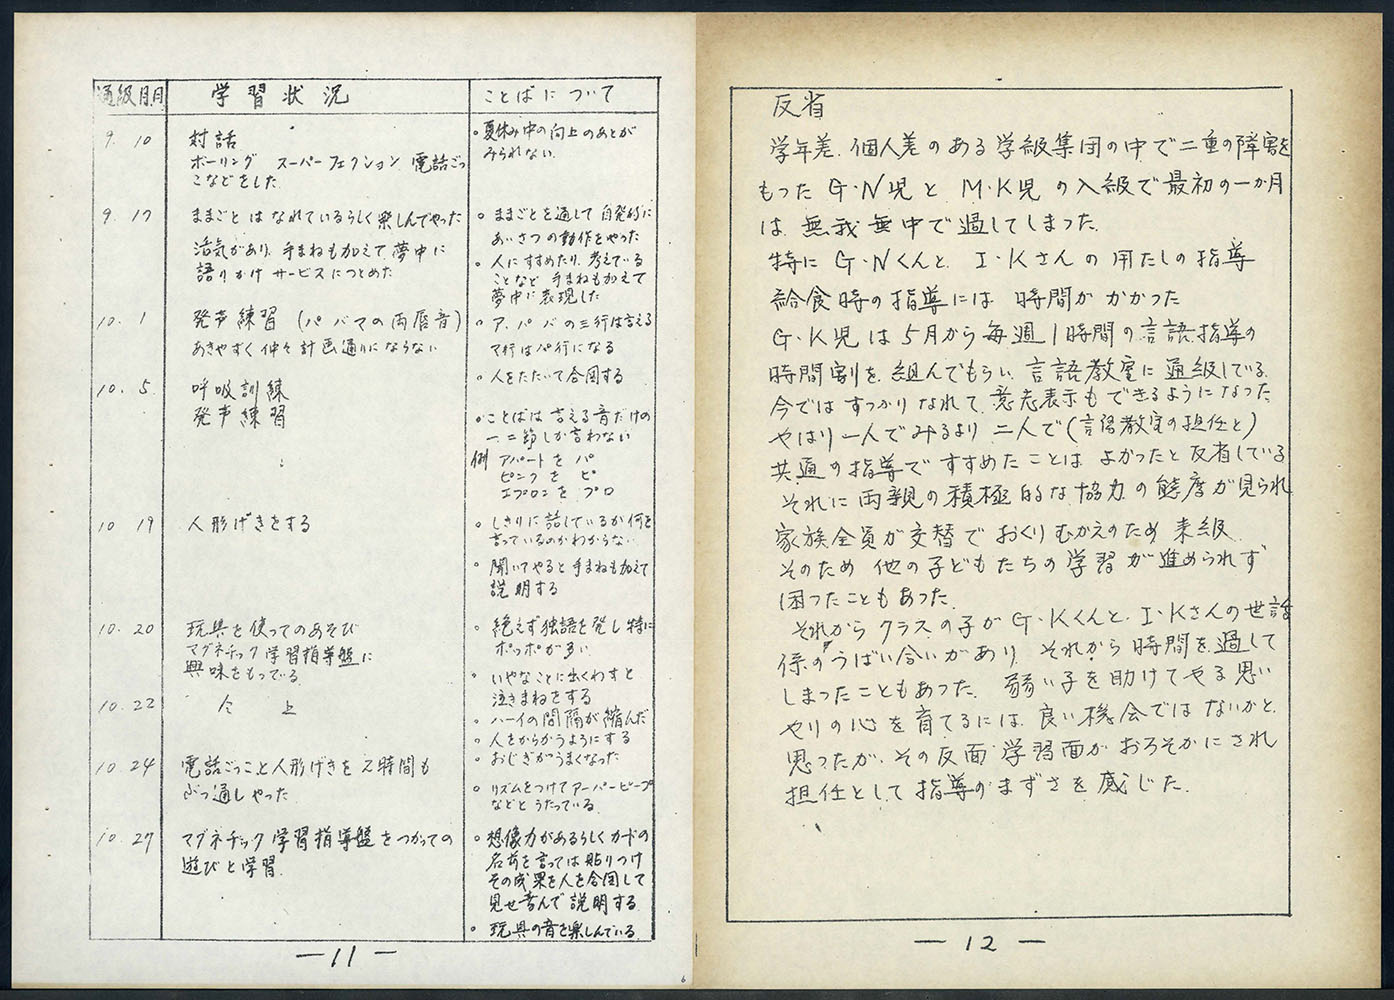 通級月日
学習状況
ことばについて
9. 10
対話
ボーリング スーパーフェクション 電話ごっ
こなどをした
。夏休み中の向上のあとが
みられない
9. 17
ままごとはなれているらしく楽しんでやった
活気があり、手まねも加えて夢中に
語りかけサービスにつとめた
。ままごとを通して自発的に
あいさつの動作をやった
。人にすすめたり、考えている
ことなど手まねも加えて
夢中に表現した
10. 1
発声練習(パバマの両唇音)
あきやすく仲々計画通りにならない
。ア、パ、バの三行は言える
マ行はパ行になる
。人をたたいて合図する
10. 5
呼吸訓練
発声練習
。ことばは言える音だけの
一二節しか言わない
例 アパートをパ
ピンクをピ
エプロンをプロ
10 19
人形げきをする
。しきりに話しているが何を
言っているのかわからない
。聞いてやると手まねも加えて
説明する
10. 20
玩具を使ってのあそび
マグネチック学習指導盤に
興味をもっている
。絶えず独語を発し特に
ポッポが多い
。いやなことに出くわすと
泣きまねをする
10. 22
仝 上
。ハーイの間隔が縮んだ
。人をからかうようにする
。おじぎがうまくなった
10. 24
電話ごっこと人形げきを2時間も
ぶっ通しやった
。リズムをつけてアーパーピープ
などとうたっている
10. 27
マグネチック学習指導盤をつかっての
遊びと学習
。想像力があるらしくカードの
名前を言っては貼りつけ
その成果を人を合図して
見せ喜んで説明する
。玩具の音を楽しんでいる
— 11 —
反省
学年差、個人差のある学級集団の中で二重の障害を
もったG・N児とM・K児の入級で最初の一か月
は、無我無中で過してしまった。
特にG・Nくんと、I・Kさんの用たしの指導
給食時の指導には時間がかかった
G・K児は5月から毎週1時間の言語指導の
時間割を、組んでもらい、言語教室に通級している。
今ではすっかりなれて、意志表示もできるようになった
やはり一人でみるより二人で(言語教室の担任と)
共通の指導ですすめたことは、よかったと反省している
それに両親の積極的な協力の態度が見られ
家族全員が交替でおくりむかえのため来級
そのため他の子どもたちの学習が進められず
困ったこともあった。
それからクラスの子がG・Kくんと、I・Kさんの世話
係のうばい合いがあり、それから時間を過して
しまったこともあった。弱い子を助けてやる思い
やりの心を育てるには、良い機会ではないかと、
思ったが、その反面学習面がおろそかにされ
担任として指導のまずさを感じた。
— 12 —